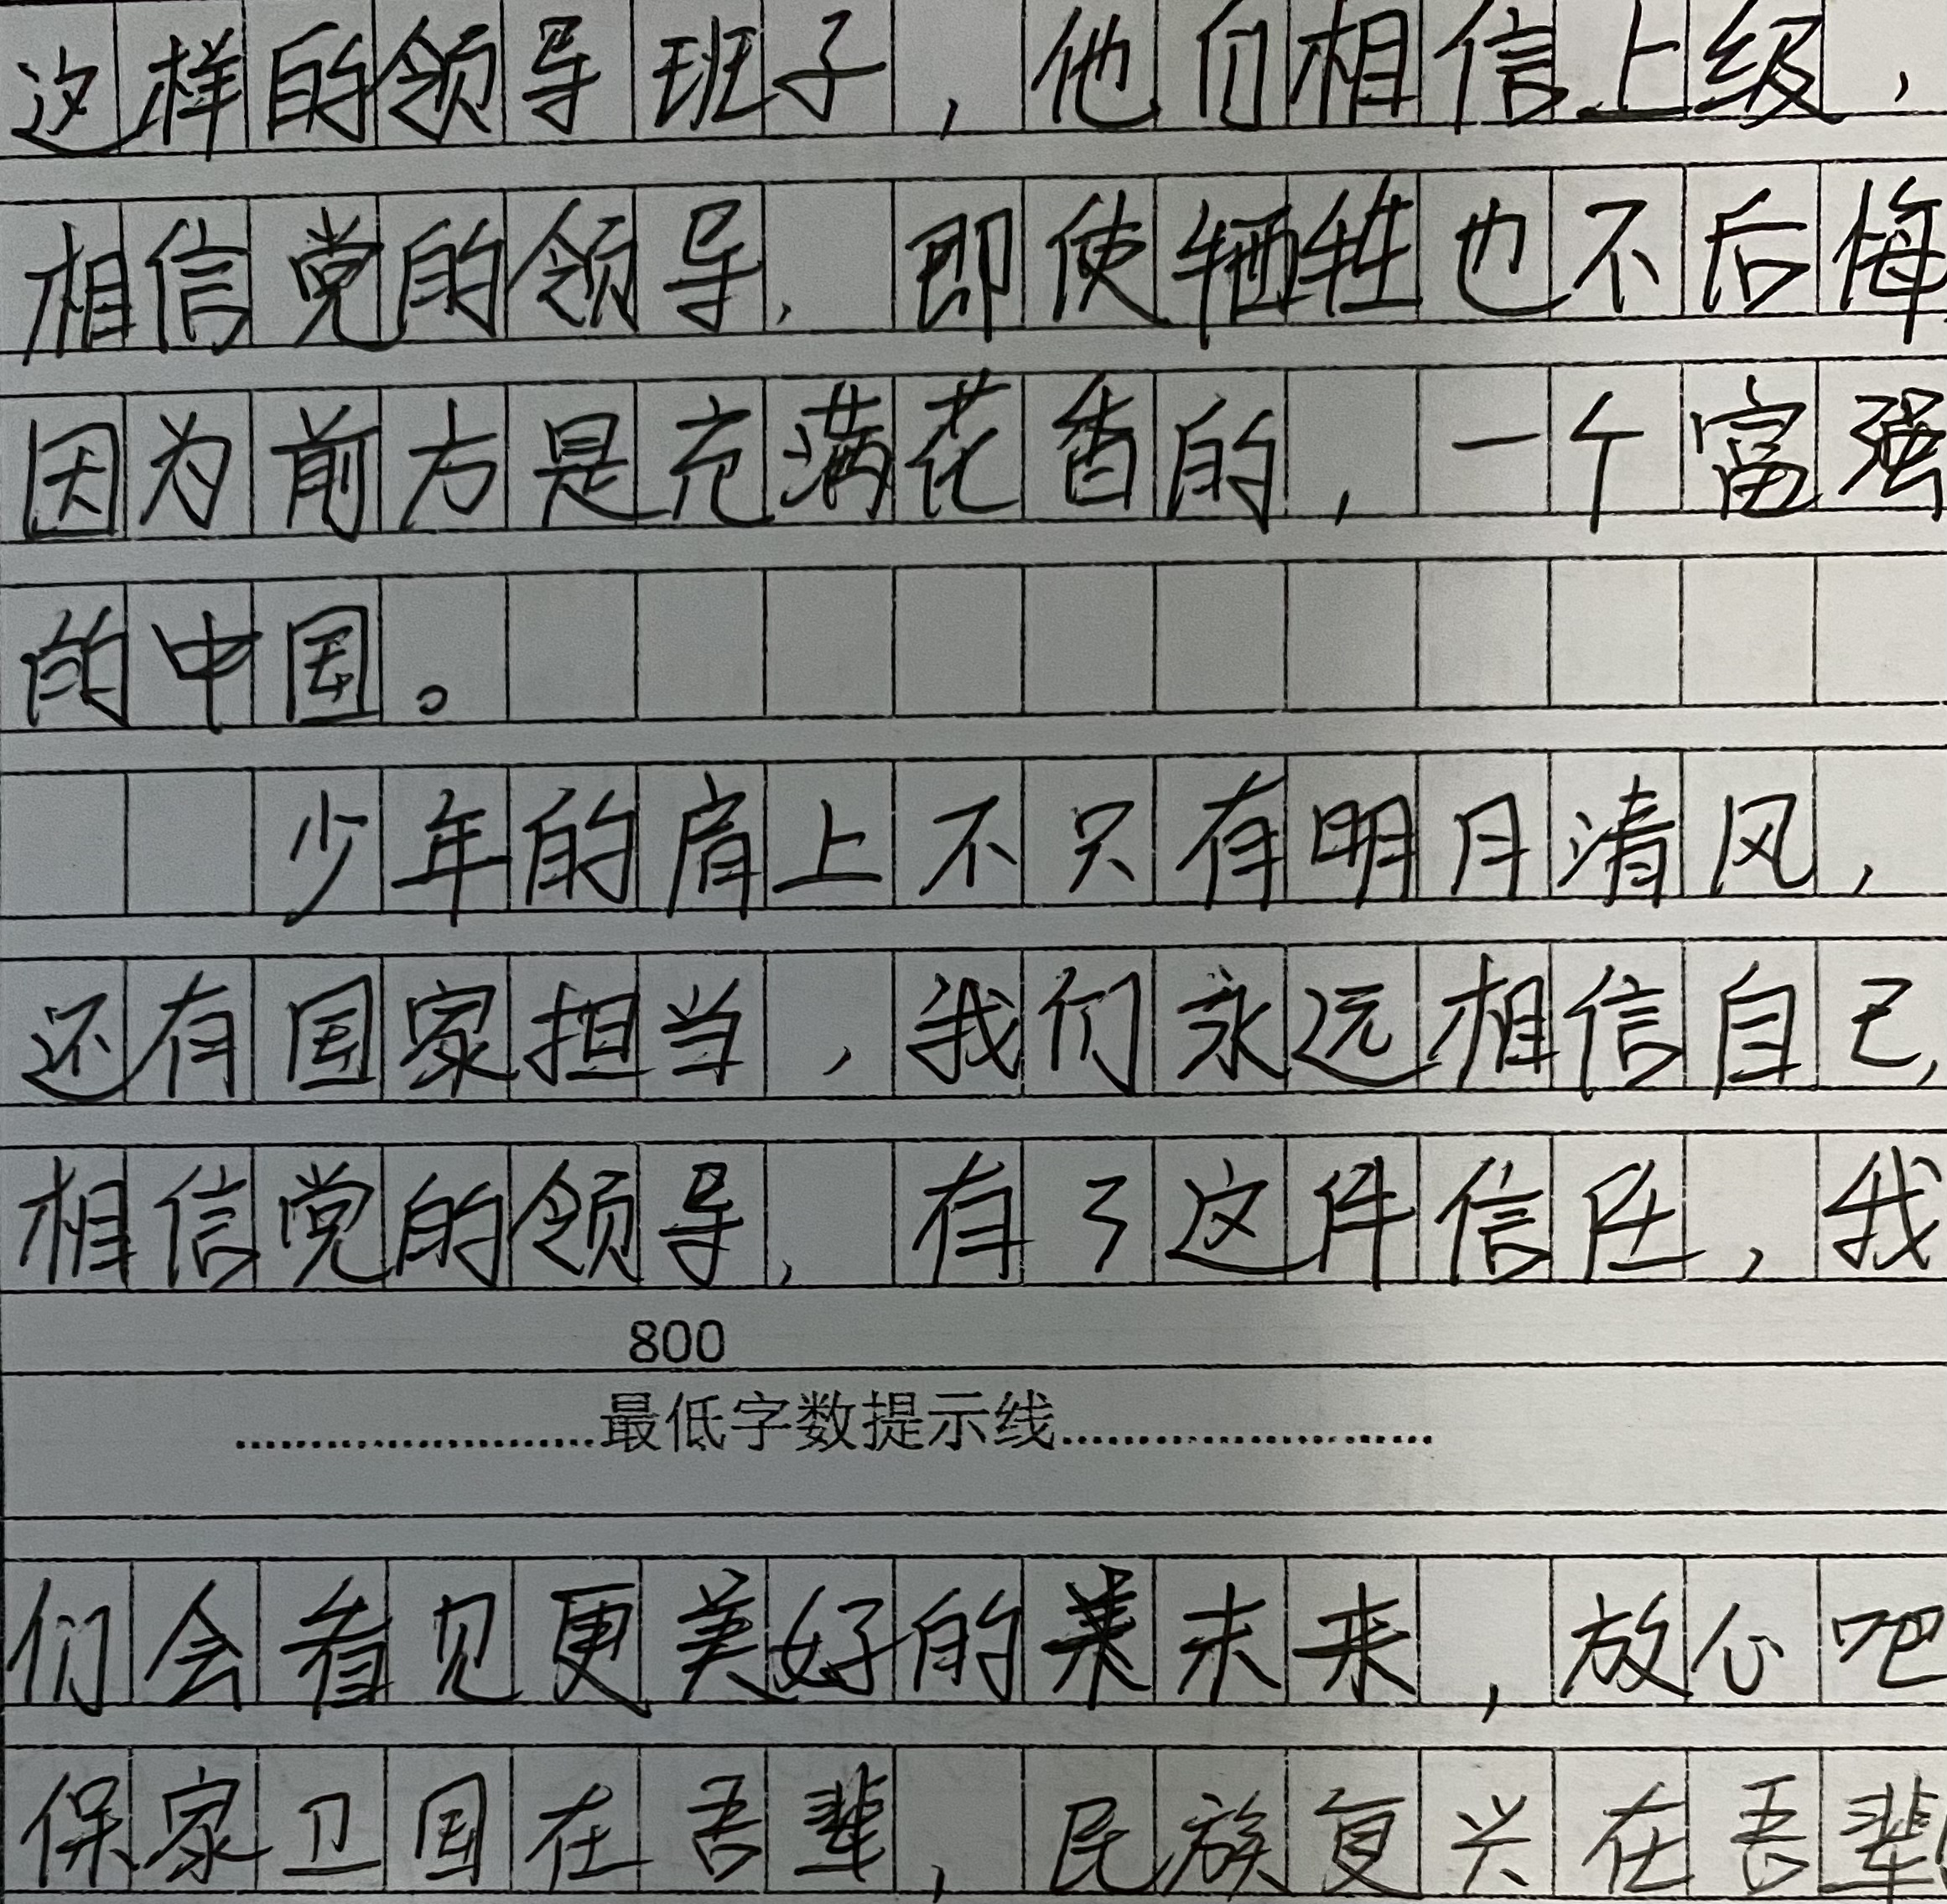 这样的领导班子，他们相信上级，
相信党的领导，即使牺牲也不后悔
因为前方是充满花香的，一个富强
的中国。
少年的肩上不只有明月清风，
还有国家担当，我们永远相信自己，
相信党的领导，有了这件信任，我
800
最低字数提示线
们会看见更美好的未来，放心吧
保家卫国在吾辈，民族复兴在吾辈！